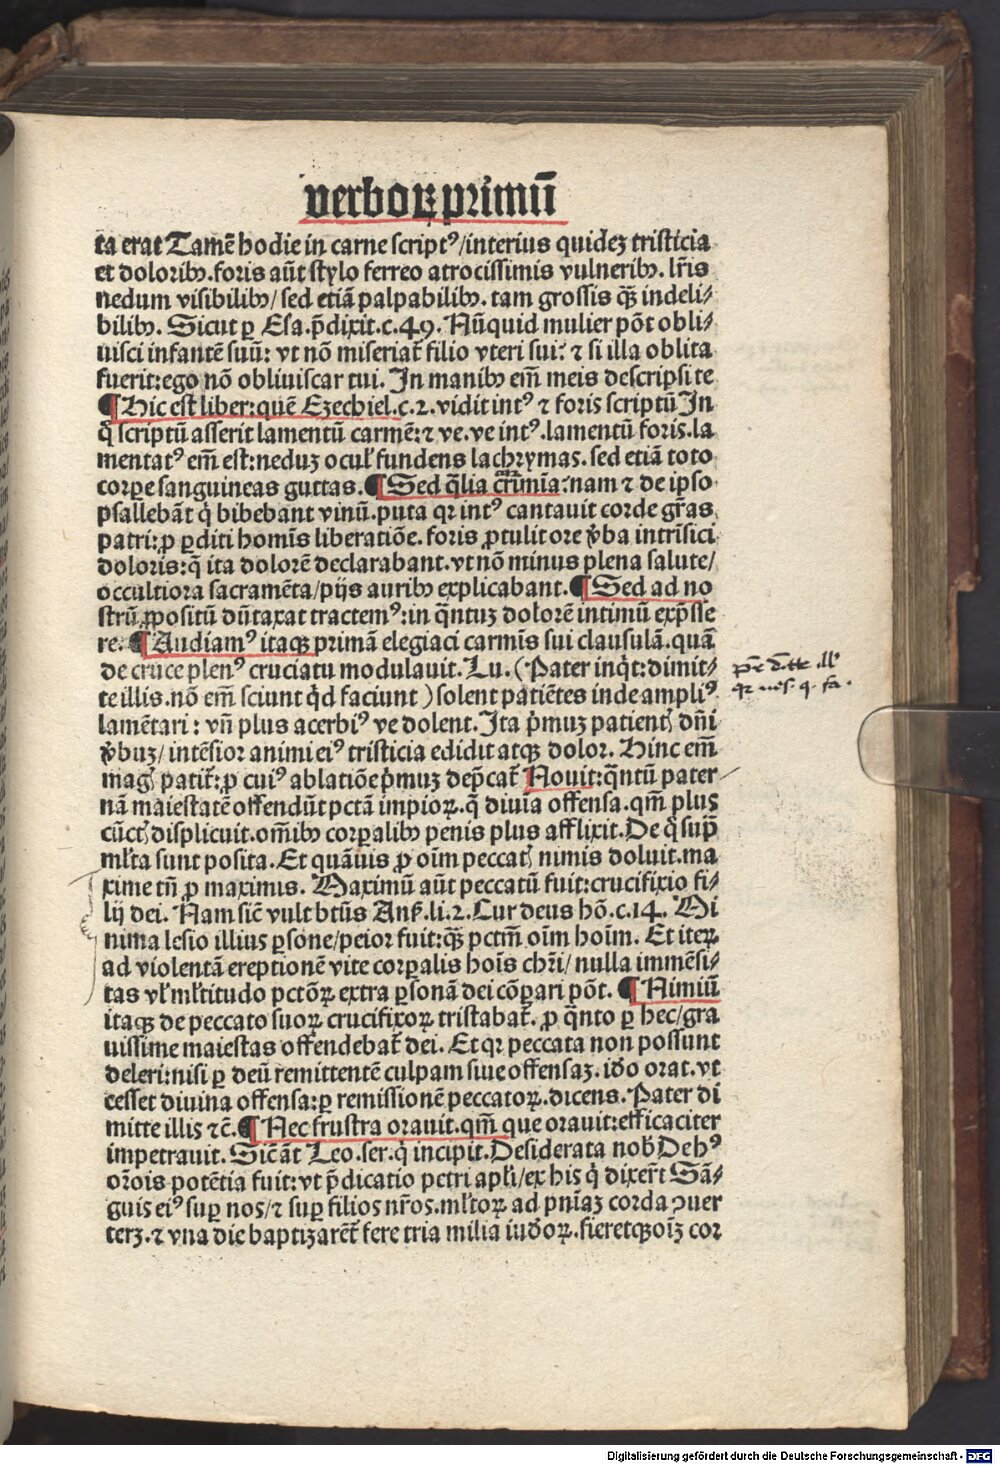 verboꝝ primū
ta erat Tamē hodie in carne scriptꝰ/interius quideꝫ tristicia
et doloribꝰ.foris aūt stylo ferreo atrocissimis vulneribꝰ. lr̄is
nedum visibilibꝰ/ sed etiā palpabilibꝰ. tam grossis qꝫ̄ indeli/
bilibꝰ. Sicut ꝑ Esa. p̄dixit.c.49. Nūquid mulier pōt obli/
uisci infantē suū: vt nō miseriat̄ filio vteri sui? ⁊ si illa oblita
fuerit:ego nō obliuiscar tui. In manibꝰ em̄ meis descripsi te
¶ Hic est liber:quē Ezechiel.c.2.vidit intꝰ ⁊ foris scriptū In
q̊ scriptū asserit lamentū carmē:⁊ ve.ve intꝰ.lamentū foris.la
mentatꝰ em̄ est:neduꝫ ocul̓ fundens lachrymas.sed etiā toto
corꝑe sanguineas guttas.¶ Sed q̄lia cr̄mīa:nam ⁊ de ipso
psallebāt q̇ bibebant vinū.puta qꝛ intꝰ cantauit corde gr̄as
patri:ꝓ ꝑditi homīs liberatiōe.foris ꝓtulit ore v̓ba intrīsici
doloris:q̄ ita dolorē declarabant.vt nō minus plena salute/
occultiora sacramēta/pijs auribꝰ explicabant.¶ Sed ad no
strū ꝓpositū dūtaxat tractemꝰ:in q̄ntuꝫ dolorē intimū exp̄sse
re.¶ Audiamꝰ itaqꝫ primā elegiaci carmīs sui clausulā.quā
de cruce plenꝰ cruciatu modulauit.Lu.(Pater inq̇t:dimit/
te illis.nō em̄ sciunt q̇d faciunt)solent patiētes inde ampliꝰ
lamētari: vn̄ plus acerbiꝰ ve dolent.Ita p̓muꝫ patientꝭ dn̄i
v̓buꝫ/intēsior animi eiꝰ tristicia edidit atqꝫ dolor. Hinc em̄
magꝭ patit̄:ꝓ cuiꝰ ablatiōe p̓muꝫ dep̄cat̄ Nouit:q̄ntū pater
nā maiestatē offendūt pctā impioꝝ.q̄ diuīa offensa.qm̄ plus
cūctꝭ displicuit.om̄ibꝰ corꝑalibꝰ penis plus afflixit.De q̊ sup̄
ml̓ta sunt posita.Et quāuis ꝓ oīm peccatꝭ nimis doluit.ma
xime tn̄ ꝓ maximis. Maximū aūt peccatū fuit:crucifixio fi/
lij dei. Nam sic̄ vult bt̄us Ans̓.li.2.Cur deus hō.c.14. Mi
nima lesio illius ꝑsone/peior fuit:qꝫ̄ pctm̄ oīm hoīm. Et iteꝝ
ad violentā ereptionē vite corꝑalis hoīs chr̄i/nulla immēsi/
tas vl̓ ml̓titudo pctōꝝ extra ꝑsonā dei cōꝑari pōt. ¶ Nimiū
itaqꝫ de peccato suoꝝ crucifixoꝝ tristabat̄. ꝓ q̄nto ꝑ hec/gra
uissime maiestas offendebat̄ dei. Et qꝛ peccata non possunt
deleri:nisi ꝑ deū remittentē culpam siue offensaꝫ.iđo orat.vt
cesset diuina offensa:ꝑ remissionē peccatoꝝ.dicens.Pater di
mitte illis ⁊c̄.¶ Nec frustra orauit.qm̄ que orauit:efficaciter
impetrauit. Sic̄ at Leo.ser.q̇ incipit.Desiderata nob̓ De hꝰ
or̄ois potētia fuit:vt p̄dicatio petri apl̓i/ex his q̇ dixer̄t Sā/
guis eiꝰ suꝑ nos/⁊ suꝑ filios nr̄os.ml̓toꝝ ad pnīaꝫ corda ꝯuer
terꝫ.⁊ vna die baptizarēt̄ fere tria milia iuđoꝝ.fieretqꝫ oīꝫ cor